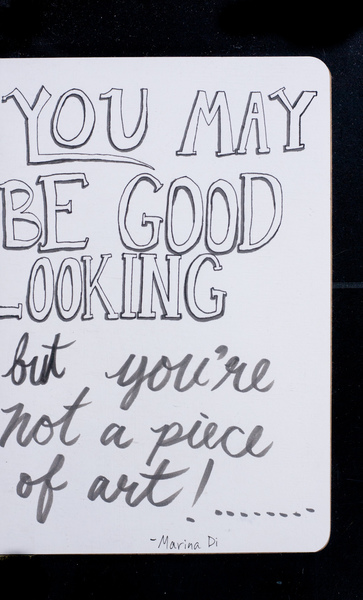 YOU MAY
BE GOOD
LOOKING
but you're
not a piece
of art! .........
-Marina Di